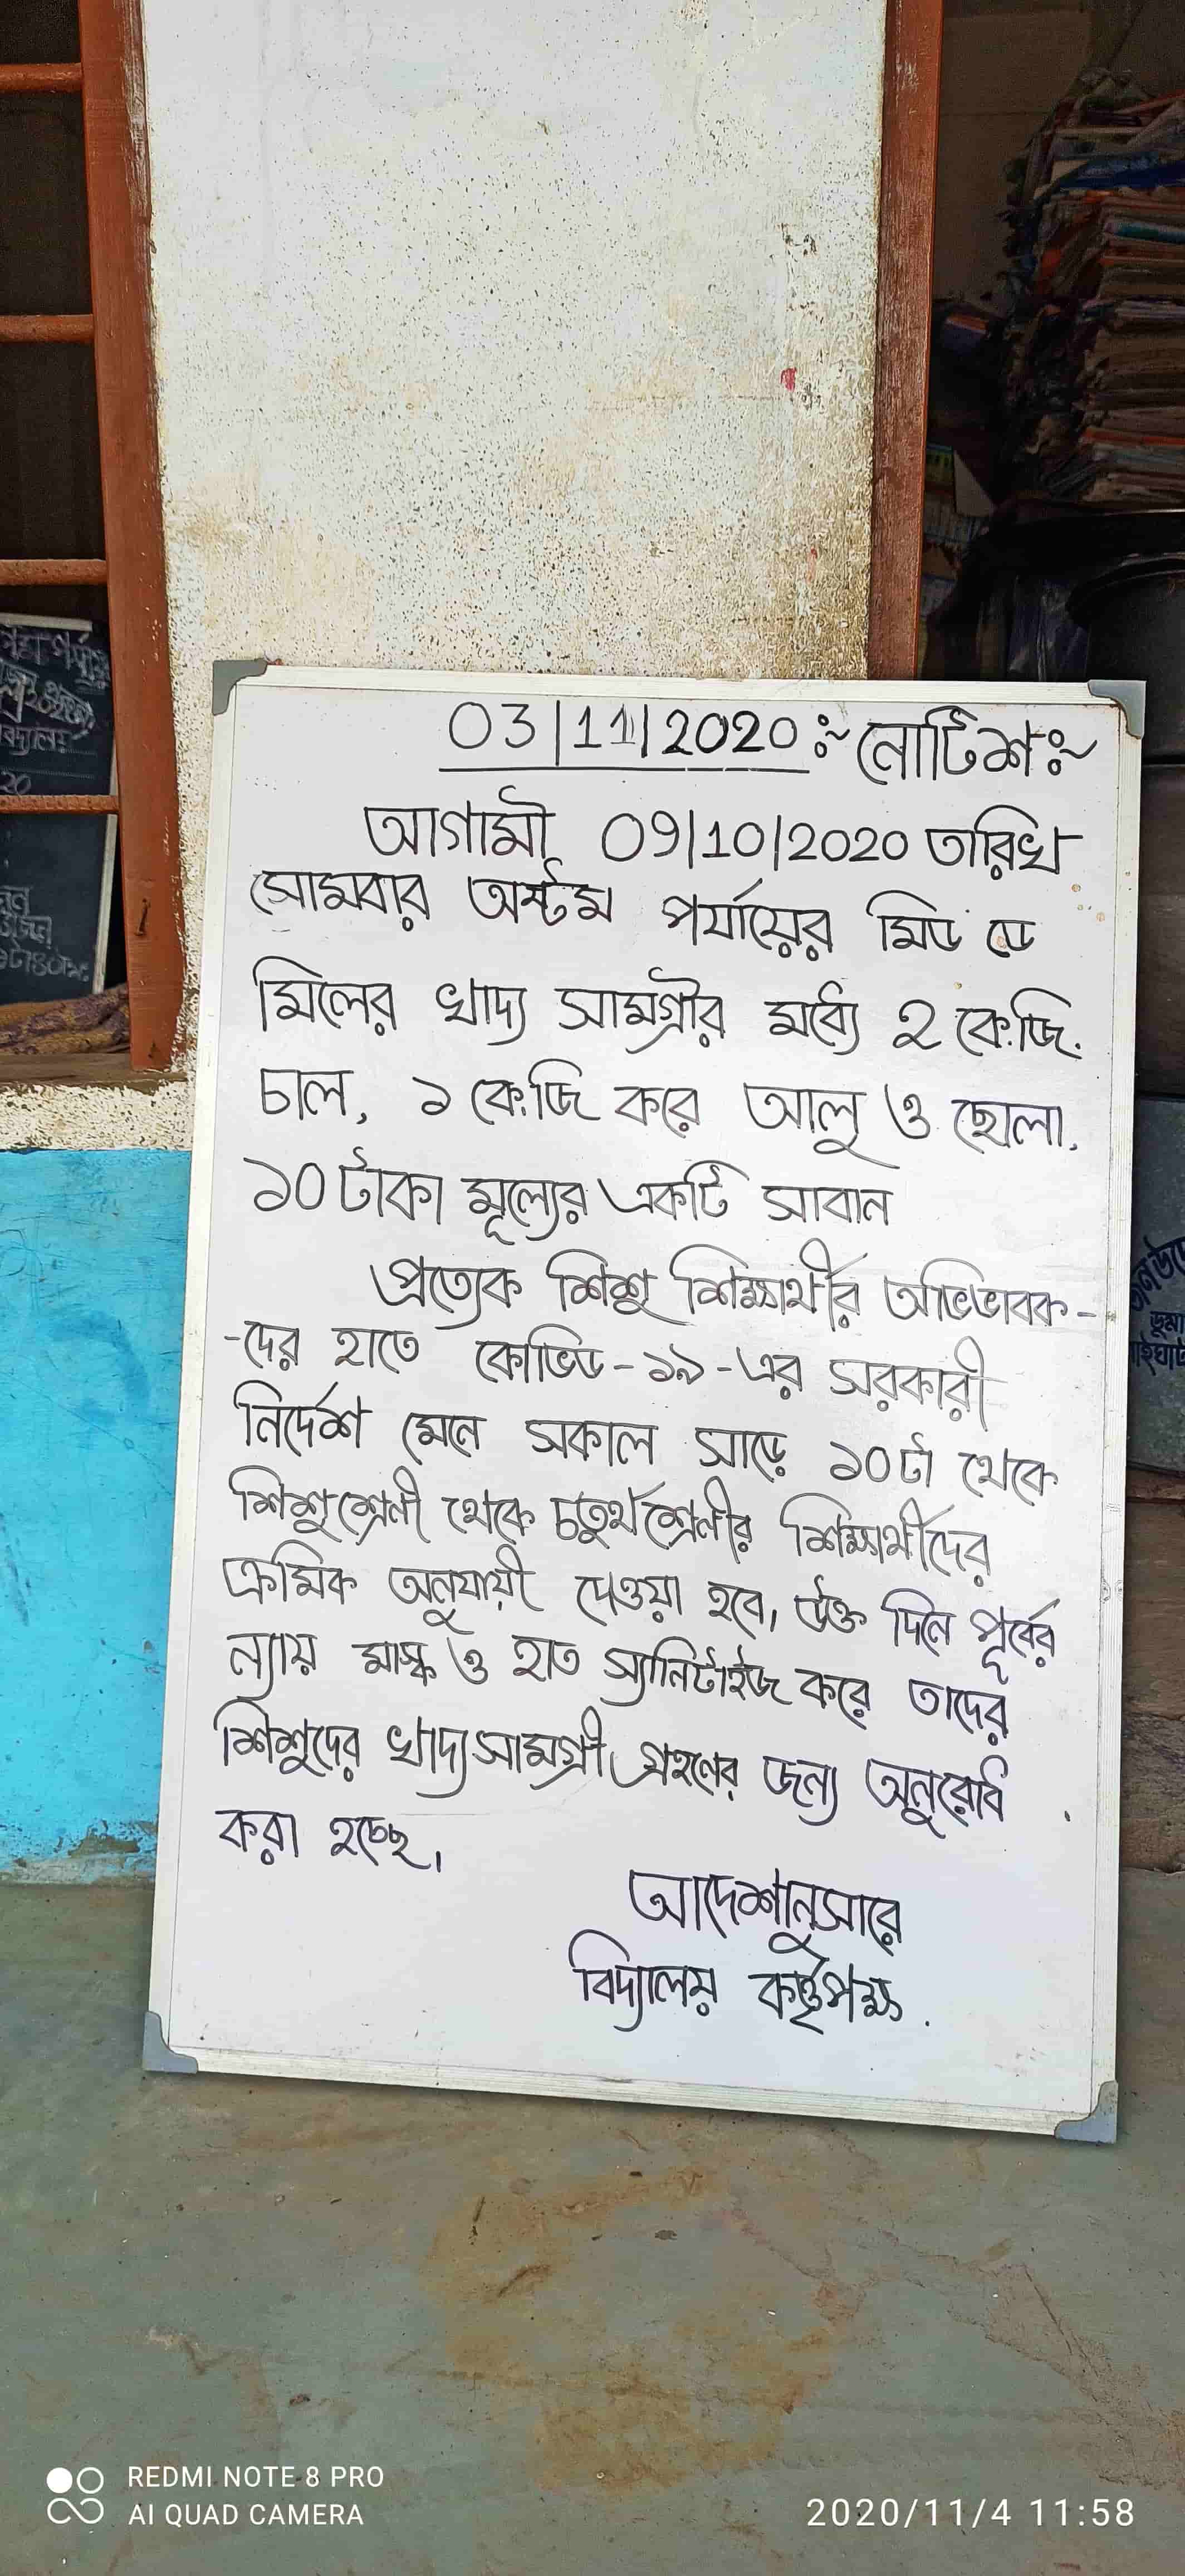 03|11|2020 ঃ~ নোটিশ ঃ~
আগামী 09|10|2020 তারিখ
সোমবার অষ্টম পর্যায়ের মিড ডে
মিলের খাদ্য সামগ্রীর মধ্যে ২ কে.জি.
চাল, ১ কে.জি করে আলু ও ছোলা,
১০ টাকা মূল্যের একটি সাবান
প্রত্যেক শিশু শিক্ষার্থীর অভিভাবক-
-দের হাতে কোভিড-১৯-এর সরকারী
নির্দেশ মেনে সকাল সাড়ে ১০টা থেকে
শিশুশ্রেণী থেকে চতুর্থ শ্রেণীর শিক্ষার্থীদের
ক্রমিক অনুযায়ী দেওয়া হবে, উক্ত দিনে পূর্বের
ন্যায় মাস্ক ও হাত স্যানিটাইজ করে তাদের
শিশুদের খাদ্যসামগ্রী গ্রহণের জন্য অনুরোধ
করা হচ্ছে।
আদেশানুসারে
বিদ্যালয় কর্তৃপক্ষ.
REDMI NOTE 8 PRO
AI QUAD CAMERA
2020/11/4 11:58